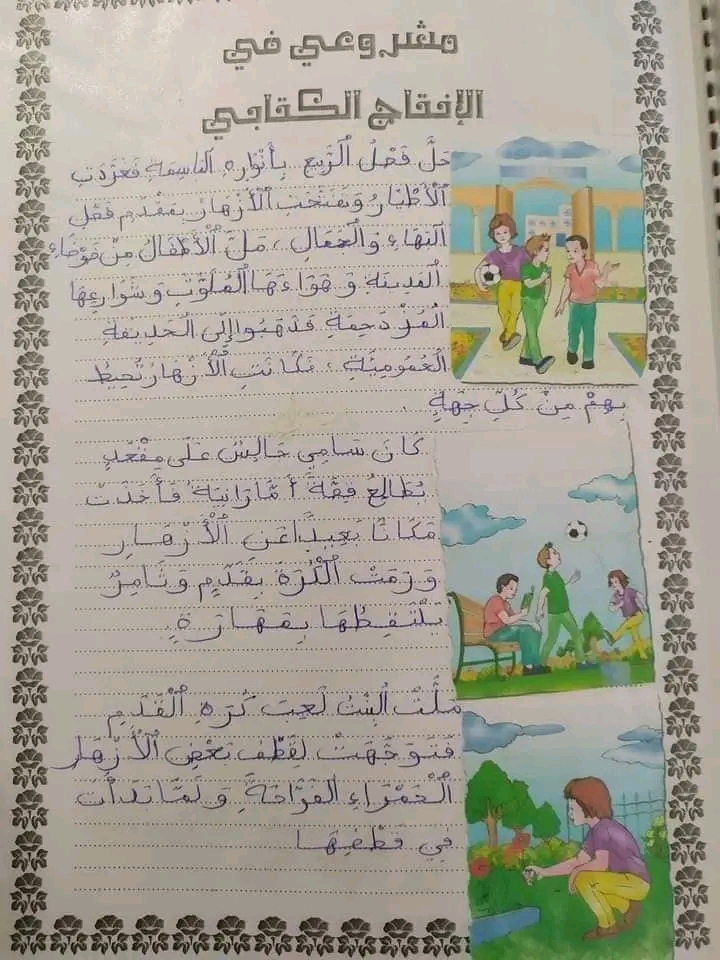 مشروعي في
الإنتاج الكتابي
حَلَّ فَصْلُ الرَّبِيعِ بِأَنْوَارِهِ البَاسِمَةِ فَغَرَّدَتِ
الْأَطْيَارُ وَتَفَتَّحَتِ الْأَزْهَارُ بِمَقْدَمِ فَصْلِ
البَهَاءِ وَالْجَمَالِ، مَلَّ الْأَطْفَالُ مِنْ ضَوْضَاءِ
الْمَدِينَةِ وَهَوَاءِهَا الْمُلَوَّثِ وَشَوَارِعِهَا
الْمُزْدَحِمَةِ فَذَهَبُوا إِلَى الْحَدِيقَةِ
الْعُمُومِيَّةِ، كَانَتِ الْأَزْهَارُ تُحِيطُ
بِهِمْ مِنْ كُلِّ جِهَةٍ.
كَانَ سَامِي جَالِسٌ عَلَى مِقْعَدٍ
يُطَالِعُ قِصَّةً أَمَّا رَانِيَةُ فَأَخَذَتْ
مَكَانًا بَعِيدًا عَنِ الْأَزْهَارِ
وَرَمَتْ الْكُرَةَ بِقَدَمٍ وَثَامِرُ
يَلْتَقِطُهَا بِمَهَارَةٍ
مَلَّتْ الْبِنْتُ لَعِبَ كُرَةِ الْقَدَمِ
فَتَوَجَّهَتْ لِقَطْفِ بَعْضِ الْأَزْهَارِ
الْحَمْرَاءِ الفَوَّاحَةِ وَلَمَّا بَدَأَتْ
فِي قَطْفِهَا